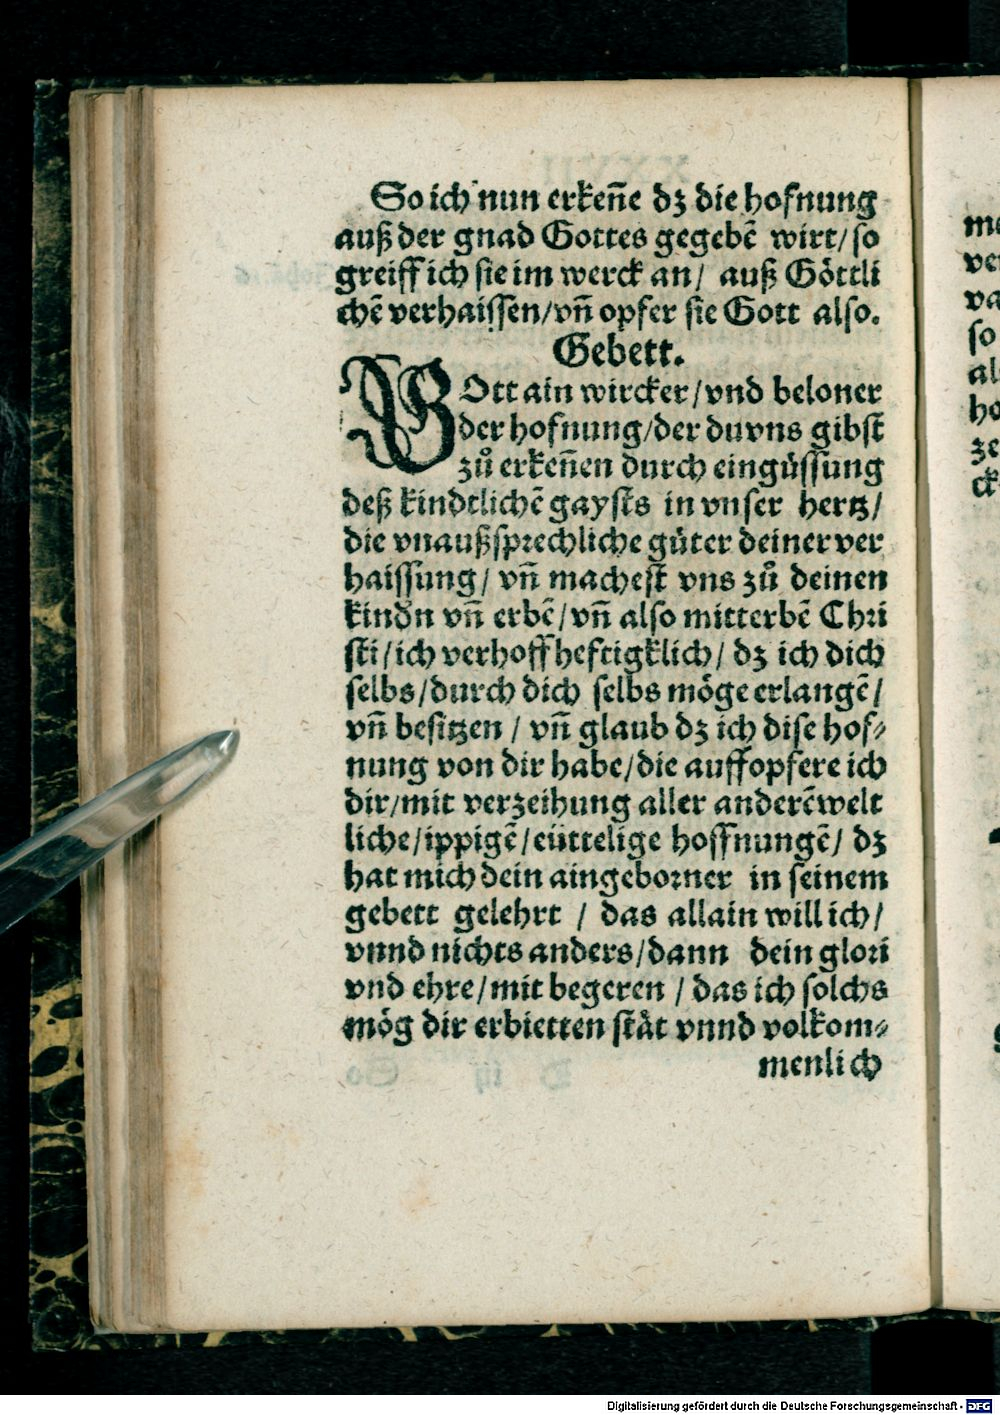 So ich nun erkeñe dz die hofnung
auß der gnad Gottes gegebẽ wirt/ so
greiff ich sie im werck an/ auß Göttli
chẽ verhaissen/ vñ opfer sie Gott also.
Gebett.
GOtt ain wircker/ vnd beloner
der hofnung/ der du vns gibst
zů erkeñen durch eingüssung
deß kindtlichẽ gaysts in vnser hertz/
die vnaußsprechliche güter deiner ver
haissung/ vñ machest vns zů deinen
kindn vñ erbẽ/ vñ also mitterbẽ Chri
sti/ ich verhoff heftigklich/ dz ich dich
selbs/ durch dich selbs möge erlangẽ/
vñ besitzen / vñ glaub dz ich dise hof⸗
nung von dir habe/ die auffopfere ich
dir/ mit verzeihung aller anderẽ welt
liche/ ippigẽ/ eüttelige hoffnungẽ/ dz
hat mich dein aingeborner in seinem
gebett gelehrt / das allain will ich/
vnnd nichts anders/ dann dein glori
vnd ehre/ mit begeren / das ich solchs
mög dir erbietten stät vnnd volkom⸗
menlich
me
ve
va
so
al
ho
ze
ck
Digitalisierung gefördert durch die Deutsche Forschungsgemeinschaft - DFG